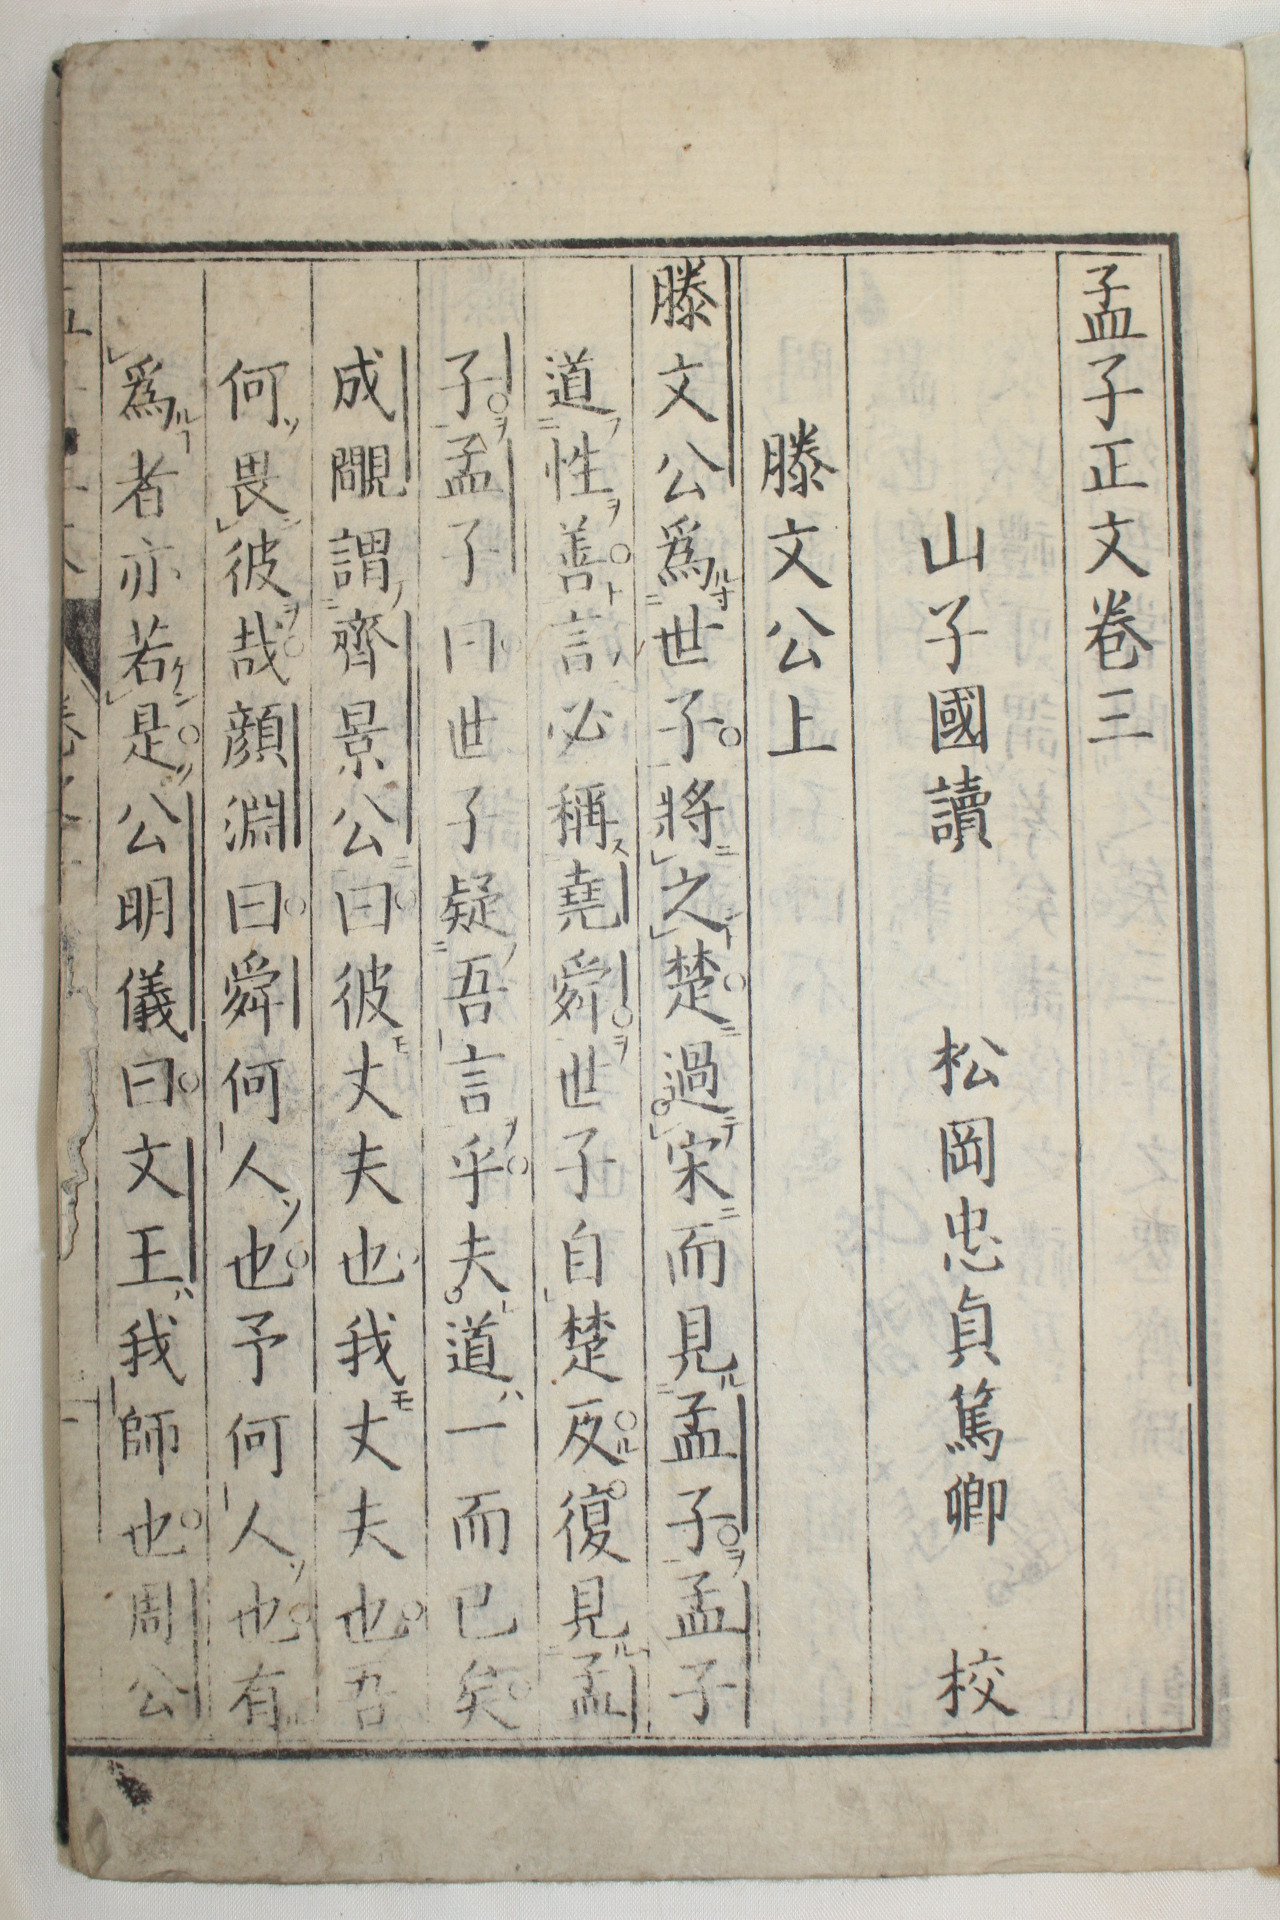 孟子正文卷三
山子國讀　松岡忠貞篤卿　校
滕文公上
滕文公爲世子將之楚過宋而見孟子孟子
道性善言必稱堯舜世子自楚反復見孟
子孟子曰世子疑吾言乎夫道一而已矣
成覵謂齊景公曰彼丈夫也我丈夫也吾
何畏彼哉顏淵曰舜何人也予何人也有
爲者亦若是公明儀曰文王我師也周公